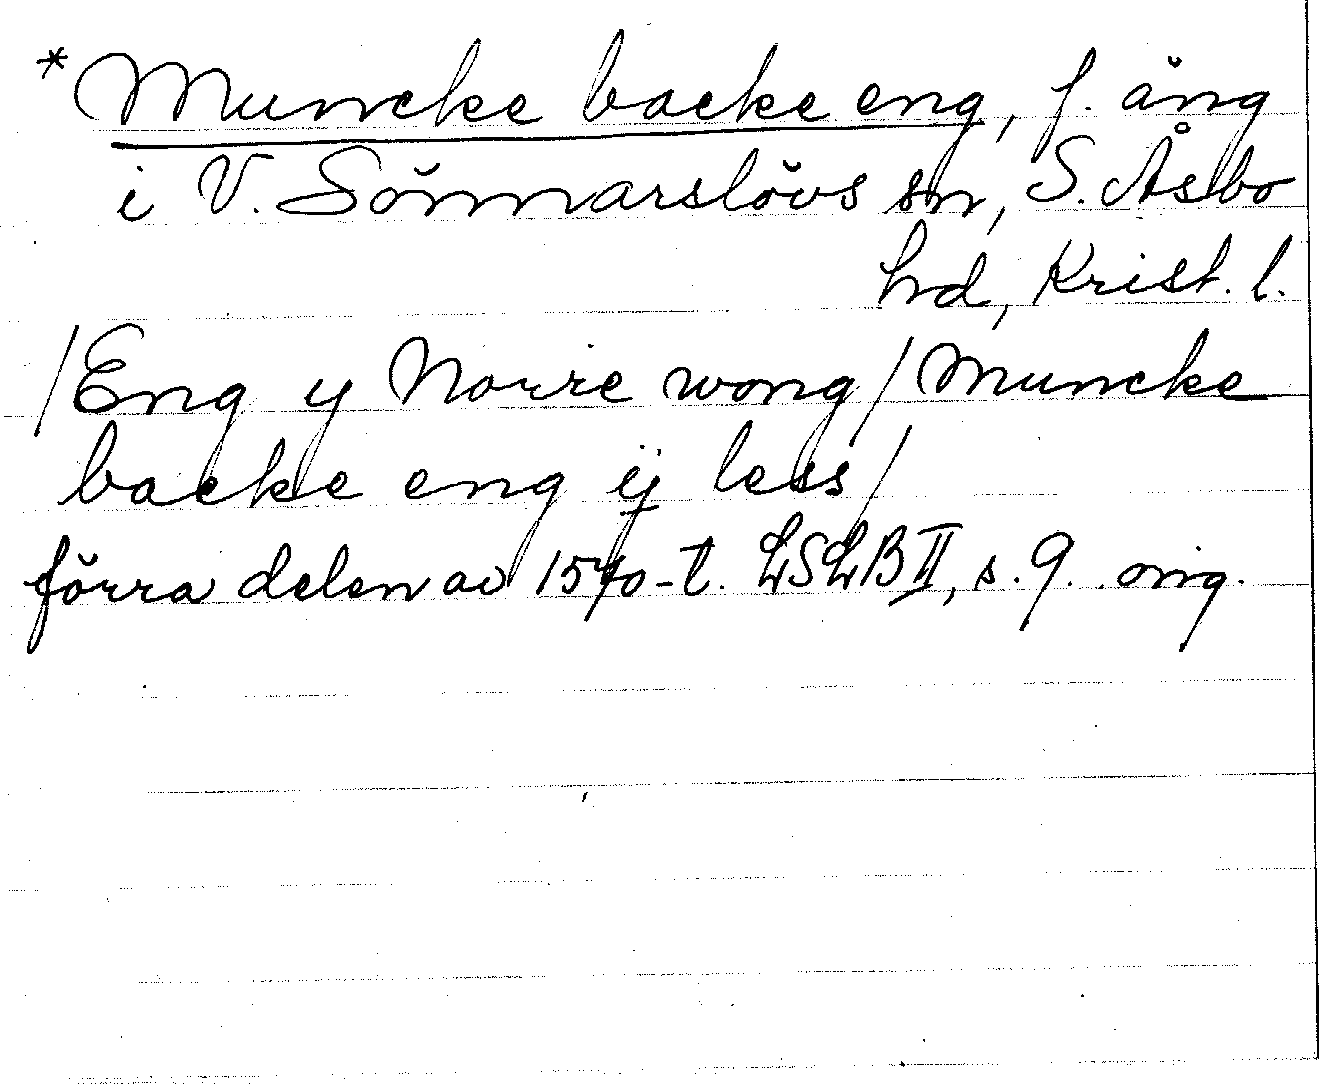 *Muncke backe eng, f. äng
i V. Sönnarslövs sn, S. Åsbo
hd, Krist. l.
/Eng y Norre wong/ Muncke
backe eng ij less/
förra delen av 1570-t. LSLB II, s. 9. orig.